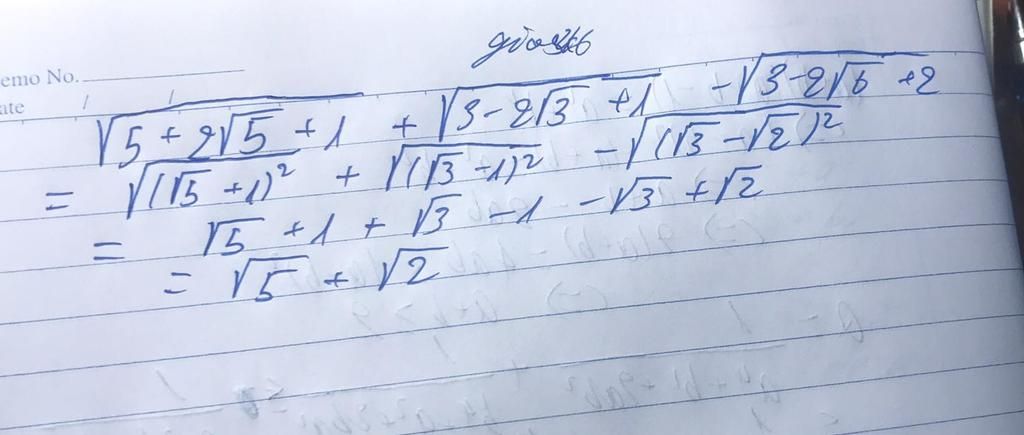 giáo36
emo No.
ate / /
√(5 + 2√5 + 1) + √(3 - 2√3 + 1) - √(3 - 2√6 + 2)
= √((√5 + 1)²) + √((√3 - 1)²) - √((√3 - √2)²)
= √5 + 1 + √3 - 1 - √3 + √2
= √5 + √2